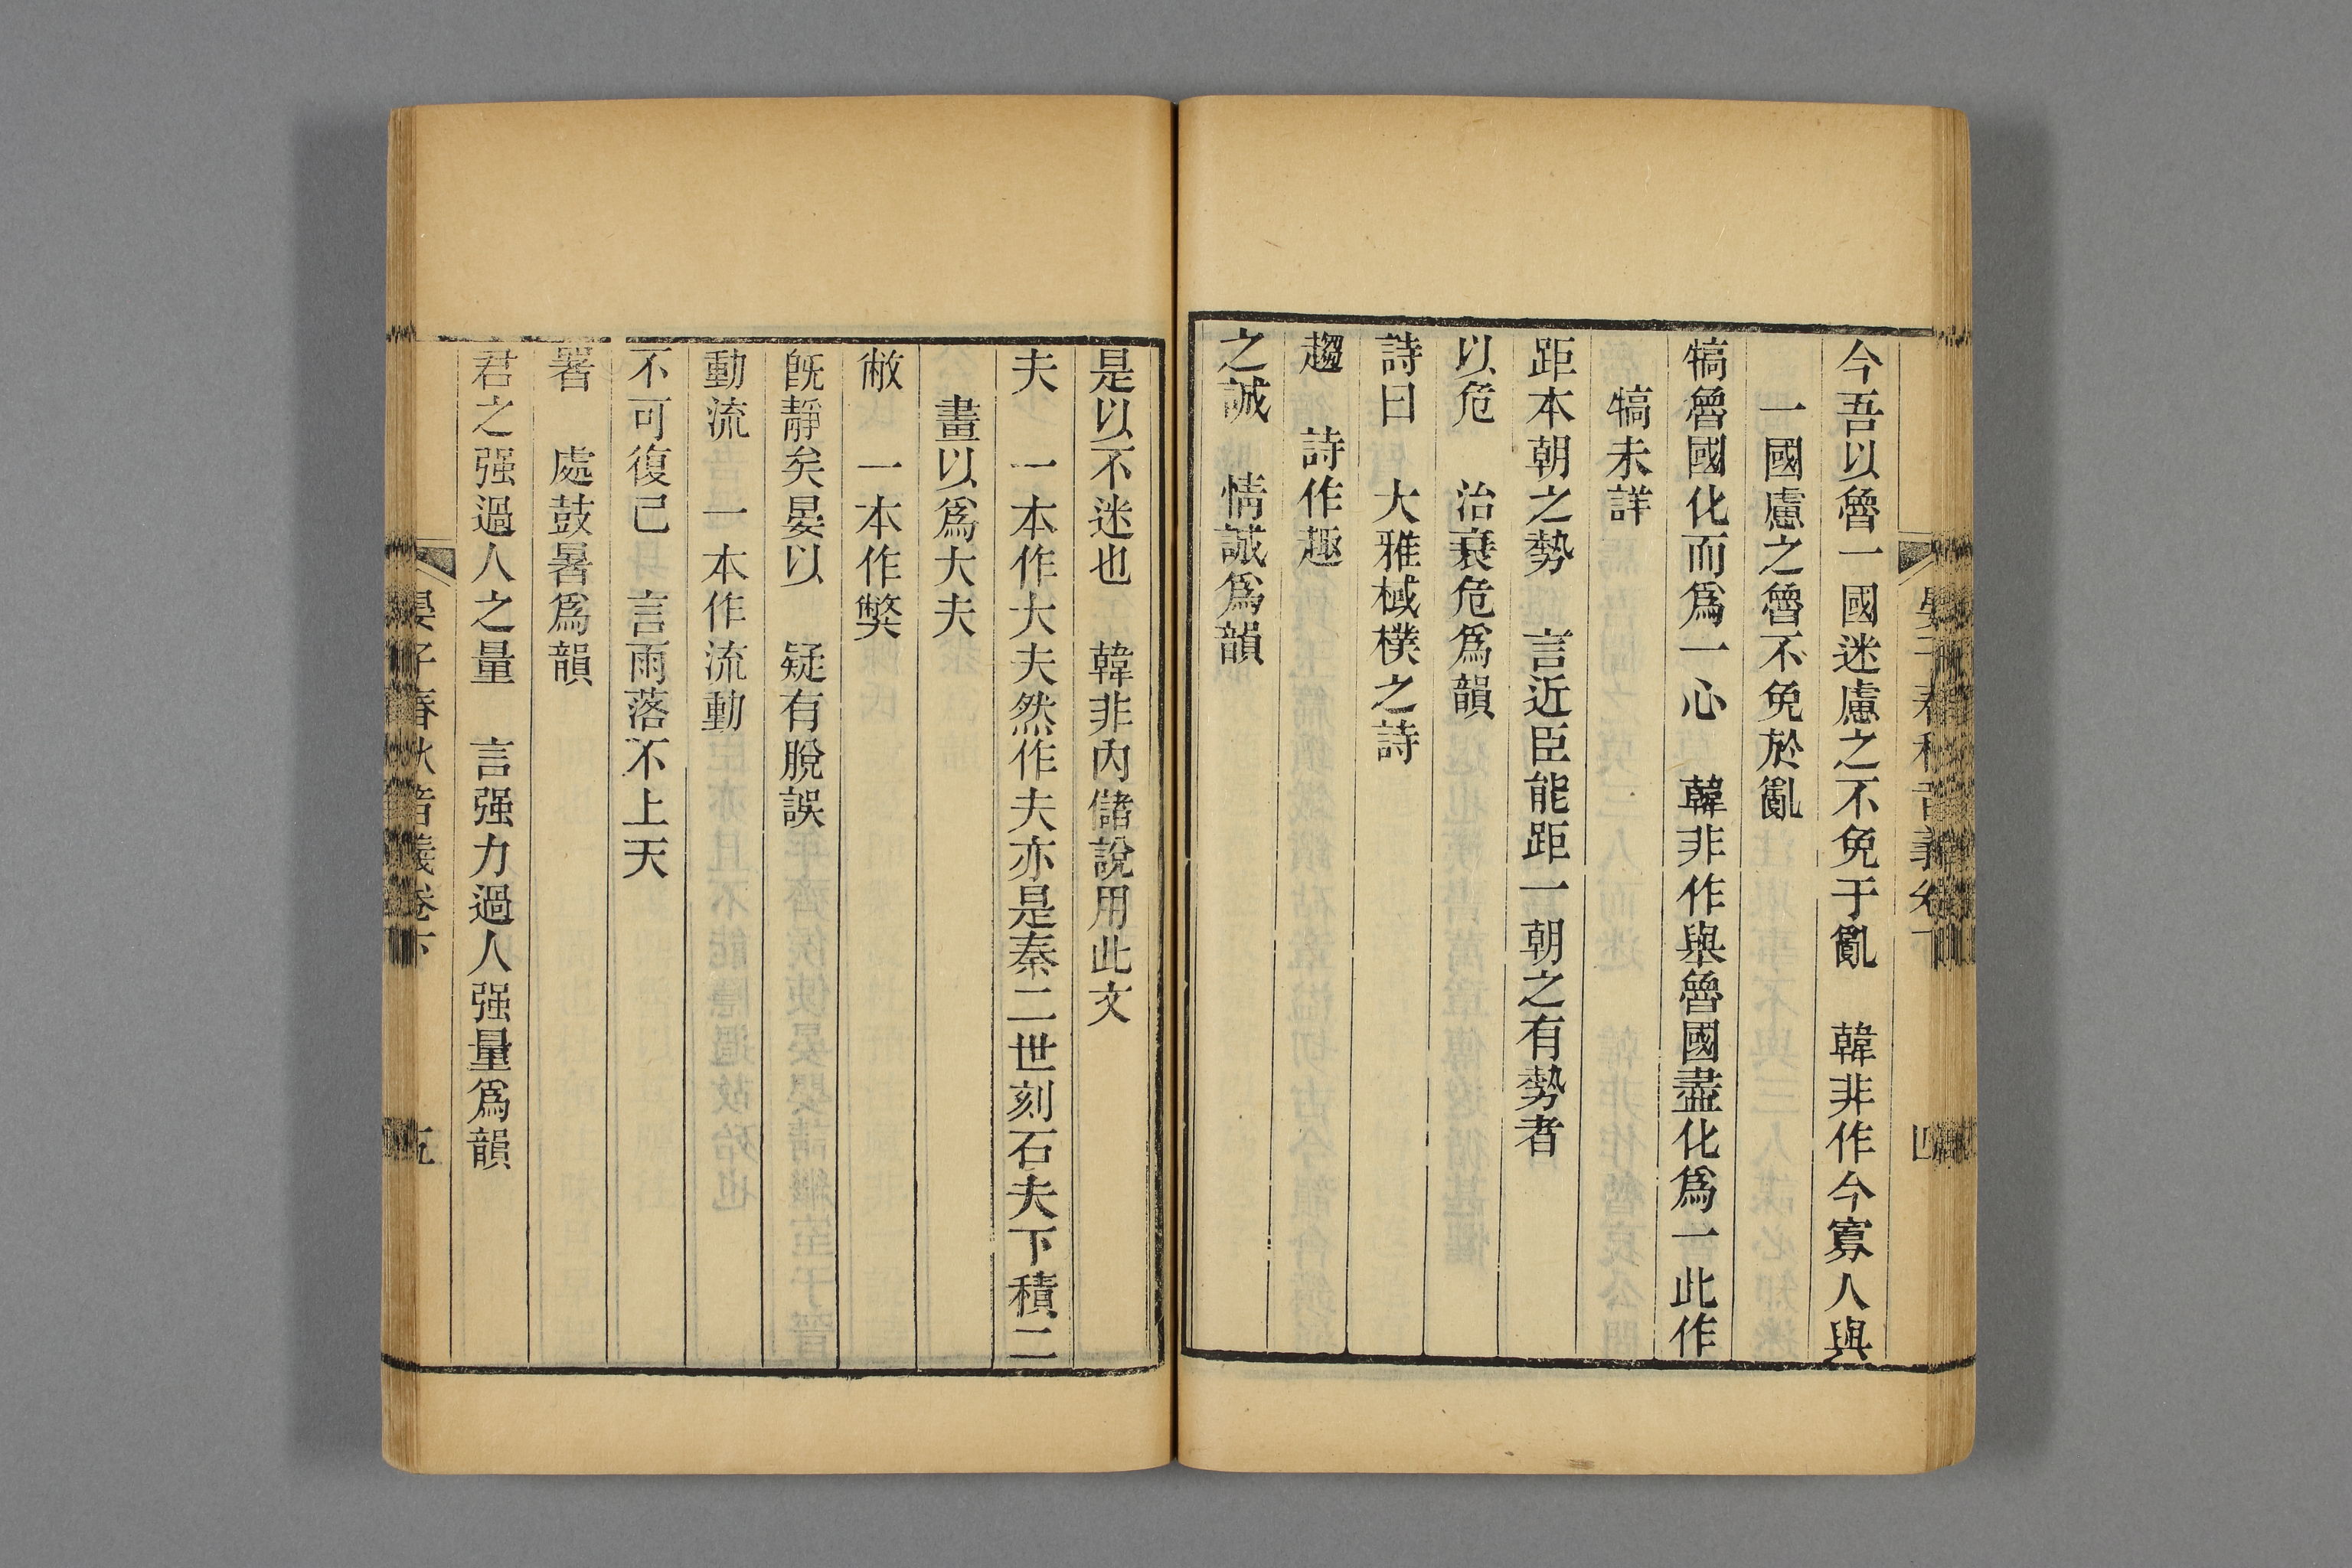 晏子春秋音義卷下 四
今吾以魯一國迷慮之不免于亂 韓非作今寡人與
一國慮之魯不免於亂
犒魯國化而爲一心 韓非作舉魯國盡化爲一此作
犒未詳
距本朝之勢 言近臣能距一朝之有勢者
以危 治衰危爲韻
詩曰 大雅棫樸之詩
趨 詩作趣
之誠 情誠爲韻
是以不迷也 韓非內儲說用此文
夫 一本作大夫然作夫亦是秦二世刻石夫下積二
畫以爲大夫
敝 一本作弊
既靜矣晏以 疑有脫誤
動流 一本作流動
不可復已 言雨落不上天
署 處鼓暑爲韻
君之强過人之量 言强力過人强量爲韻
晏子春秋音義卷下 五